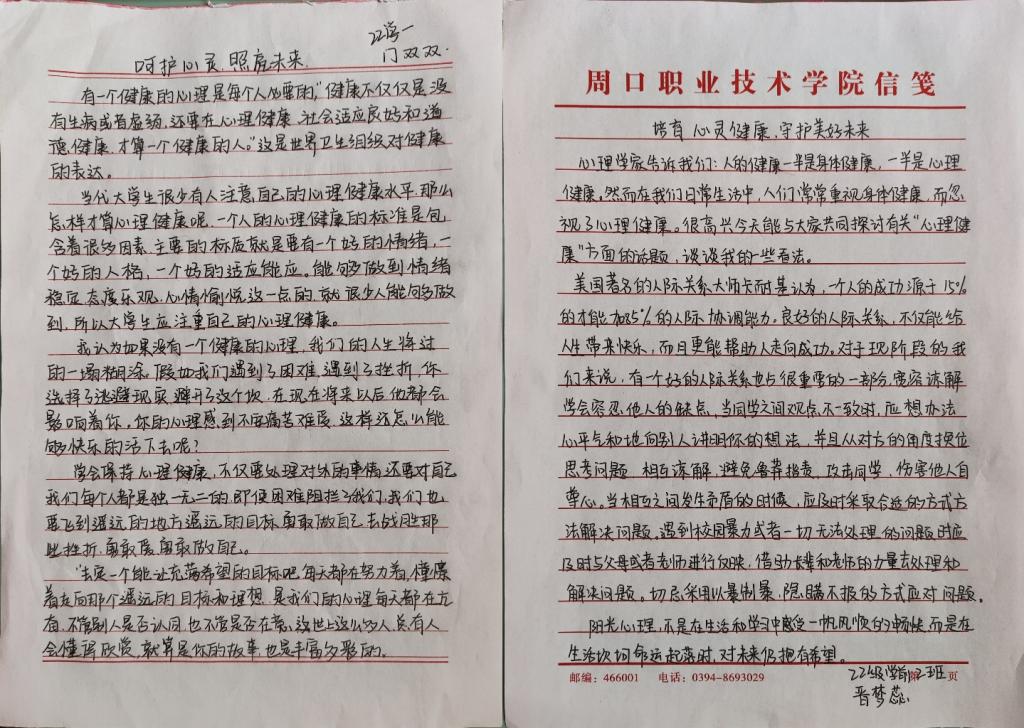 22学一
门双双.
呵护心灵.照亮未来.
有一个健康的心理是每个人必要的,"健康不仅仅是没
有生病或者虚弱,还要在心理健康.社会适应良好和道
德健康.才算一个健康的人。"这是世界卫生组织对健康
的表达。
当代大学生很少有人注意自己的心理健康水平.那么
怎样才算心理健康呢.一个人的心理健康的标准是包
含着很多因素.主要的标质就是要有一个好的情绪,一
个好的人格,一个好的适应能应。能够做到情绪
稳定.态度乐观.心情愉悦.这一点的.就很少人能够做
到.所以大学生应注重自己的心理健康。
我认为如果没有一个健康的心理,我们的人生将过
的一塌糊涂.假如我们遇到了困难.遇到了挫折.你
选择了逃避现实.避开了这个坎.在现在将来以后他都会
影响着你。你的心理感到不安痛苦难受.这样还怎么能
够快乐的活下去呢?
学会保持心理健康,不仅要处理对外的事情还要对自己
我们每个人都是独一无二的.即使困难阻拦了我们.我们也
要飞到遥远的地方遥远的目标.勇敢做自己去战胜那
些挫折.勇敢爱.勇敢做自己。
去定一个能让充满希望的目标吧.每天都在努力着,憧憬
着走向那个遥远的目标和理想.是我们的心理每天都在
有.不管别人是否认同.也不管是否在意.这世上这么多人.总有人
会懂得欣赏.就算是你的故事.也是丰富多彩的.
周口职业技术学院信笺
培育心灵健康.守护美好未来
心理学家告诉我们:人的健康一半是身体健康,一半是心理
健康。然而在我们日常生活中,人们常常重视身体健康,而忽
视了心理健康。很高兴今天能与大家共同探讨有关"心理健
康"方面的话题,谈谈我的一些看法。
美国著名的人际关系大师卡耐基认为,一个人的成功源于15%
的才能加85%的人际协调能力。良好的人际关系,不仅能给
人生带来快乐,而且更能帮助人走向成功。对于现阶段的我
们来说,有一个好的人际关系也占很重要的一部分.宽容谅解
学会容忍他人的缺点,当同学之间观点不一致时,应想办法
心平气和地向别人讲明你的想法,并且从对方的角度换位
思考问题.相互谅解,避免鲁莽指责,攻击同学,伤害他人自
尊心。当相互之间发生矛盾的时候,应及时采取合适的方式方
法解决问题。遇到校园暴力或者一切无法处理的问题时应
及时与父母或者老师进行反映,借助长辈和老师的力量去处理和
解决问题。切忌采用以暴制暴,隐瞒不报的方式应对问题。
阳光心理,不是在生活和学习中感受一帆风顺的畅快,而是在
生活坎坷命运起落时,对未来仍抱有希望。
邮编:466001 电话:0394-8693029
22级学前2班 页
晋梦蕊